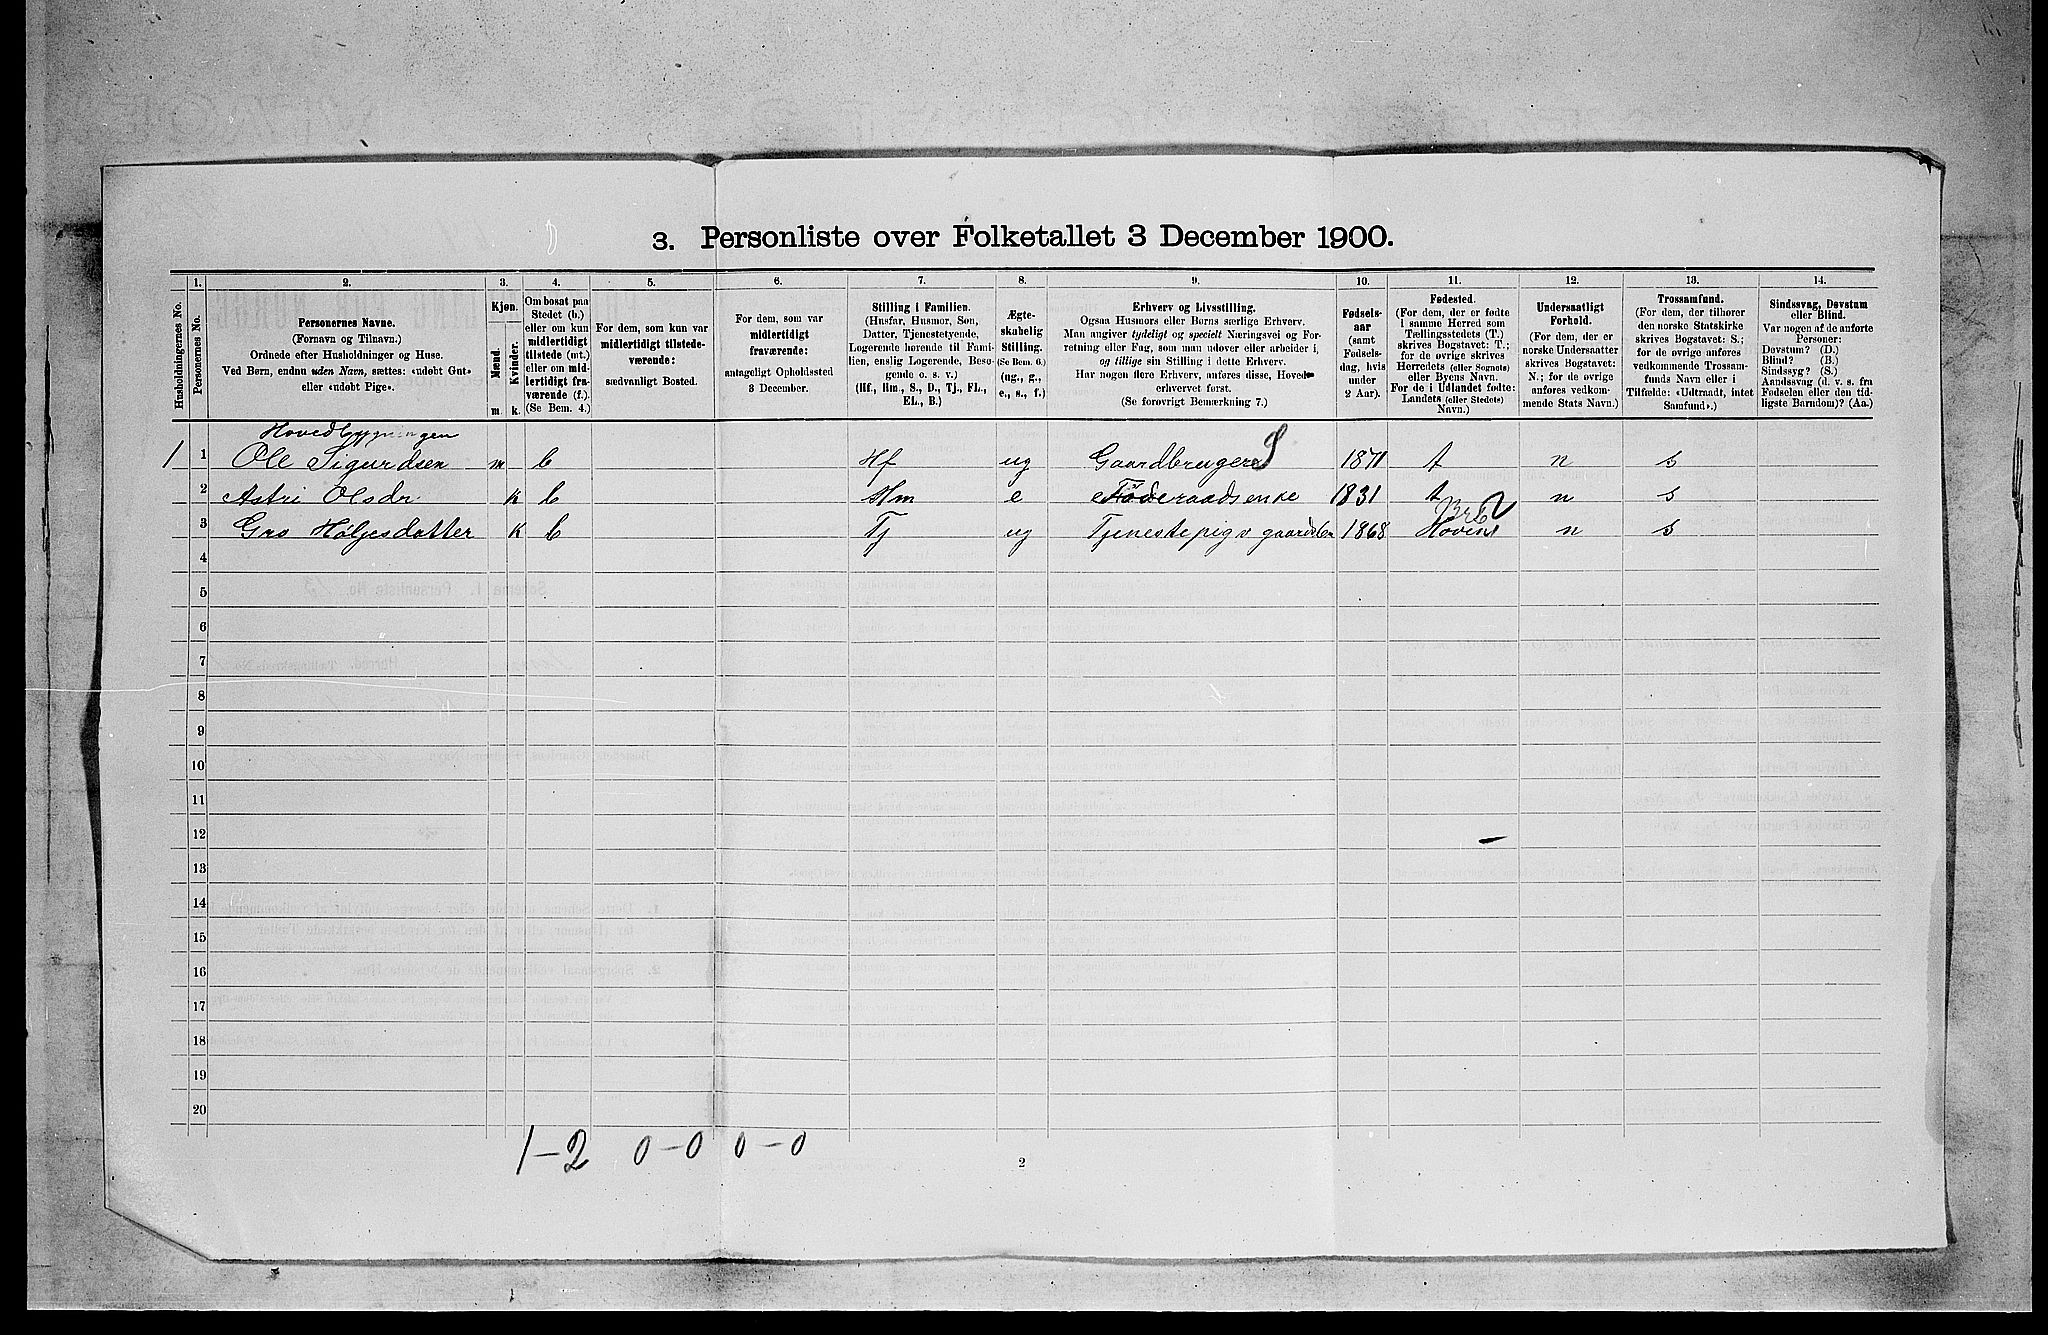 3. Personliste over Folketallet 3 December 1900.
Husholdningernes No.
1.
Personernes No.
2.
Personernes Navne.
(Fornavn og Tilnavn.)
Ordnede efter Husholdninger og Huse.
Ved Børn, endnu uden Navn, sættes: «udøbt Gut»
eller «udøbt Pige».
3.
Kjøn.
Mænd.
Kvinder.
m.
k.
4.
Om bosat paa
Stedet (b.)
eller om kun
midlertidigt
tilstede (mt.)
eller om mid-
lertidigt fra-
værende (f.).
(Se Bem. 4.)
5.
For dem, som kun var
midlertidigt tilstede-
værende:
sædvanligt Bosted.
6.
For dem, som var
midlertidigt
fraværende:
antageligt Opholdssted
3 December.
7.
Stilling i Familien.
(Husfar, Husmor, Søn,
Datter, Tjenestetyende,
Logerende hørende til Fami-
lien, enslig Logerende, Besø-
gende o. s. v.)
(Hf., Hm., S., D., Tj., FL.,
EL., B.)
8.
Ægte-
skabelig
Stilling.
(Se Bem. 6.)
(ug., g.,
e., s., f.)
9.
Erhverv og Livsstilling.
Ogsaa Husmors eller Børns særlige Erhverv.
Man angiver tydeligt og specielt Næringsvei og For-
retning eller Fag, som man udøver eller arbeider i,
og tillige sin Stilling i dette Erhverv.
Har nogen flere Erhverv, anføres disse, Hoved-
erhvervet først.
(Se forøvrigt Bemærkning 7.)
10.
Fødsels-
aar
(samt
Fødsels-
dag, hvis
under
2 Aar).
11.
Fødested.
(For dem, der er fødte
i samme Herred som
Tællingsstedets (T.)
skrives Bogstavet: T.;
for de øvrige skrives
Herredets (eller Sognets)
eller Byens Navn.
For de i Udlandet fødte:
Landets (eller Stedets)
Navn.)
12.
Undersaatligt
Forhold.
(For dem, der er
norske Undersaatter
skrives Bogstavet:
N.; for de øvrige
anføres vedkom-
mende Stats Navn.)
13.
Trossamfund.
(For dem, der tilhører
den norske Statskirke
skrives Bogstavet: S.;
for de øvrige anføres
vedkommende Trossam-
funds Navn eller i
Tilfælde: «Udtraadt, intet
Samfund».)
14.
Sindssvag, Døvstum
eller Blind.
Var nogen af de anførte
Personer:
Døvstum? (D.)
Blind? (B.)
Sindssyg? (S.)
Aandssvag (d. v. s. fra
Fødselen eller den tid-
ligste Barndom)? (Aa.)
Hovedbygningen
1 1 Ole Sigurdsen m b Hf ug Gaardbruger S 1871 t n s
2 Astri Olsdr k b Hm e Føderaadsenke 1831 t n s
3 Gro Høljesdatter k b Tj ug Tjenestepige gaardsbr 1868 Hovin n s
4
5
6
7
8
9
10
11
12
13
14
15
16
17
18
19
20
1-2 0-0 0-0
2